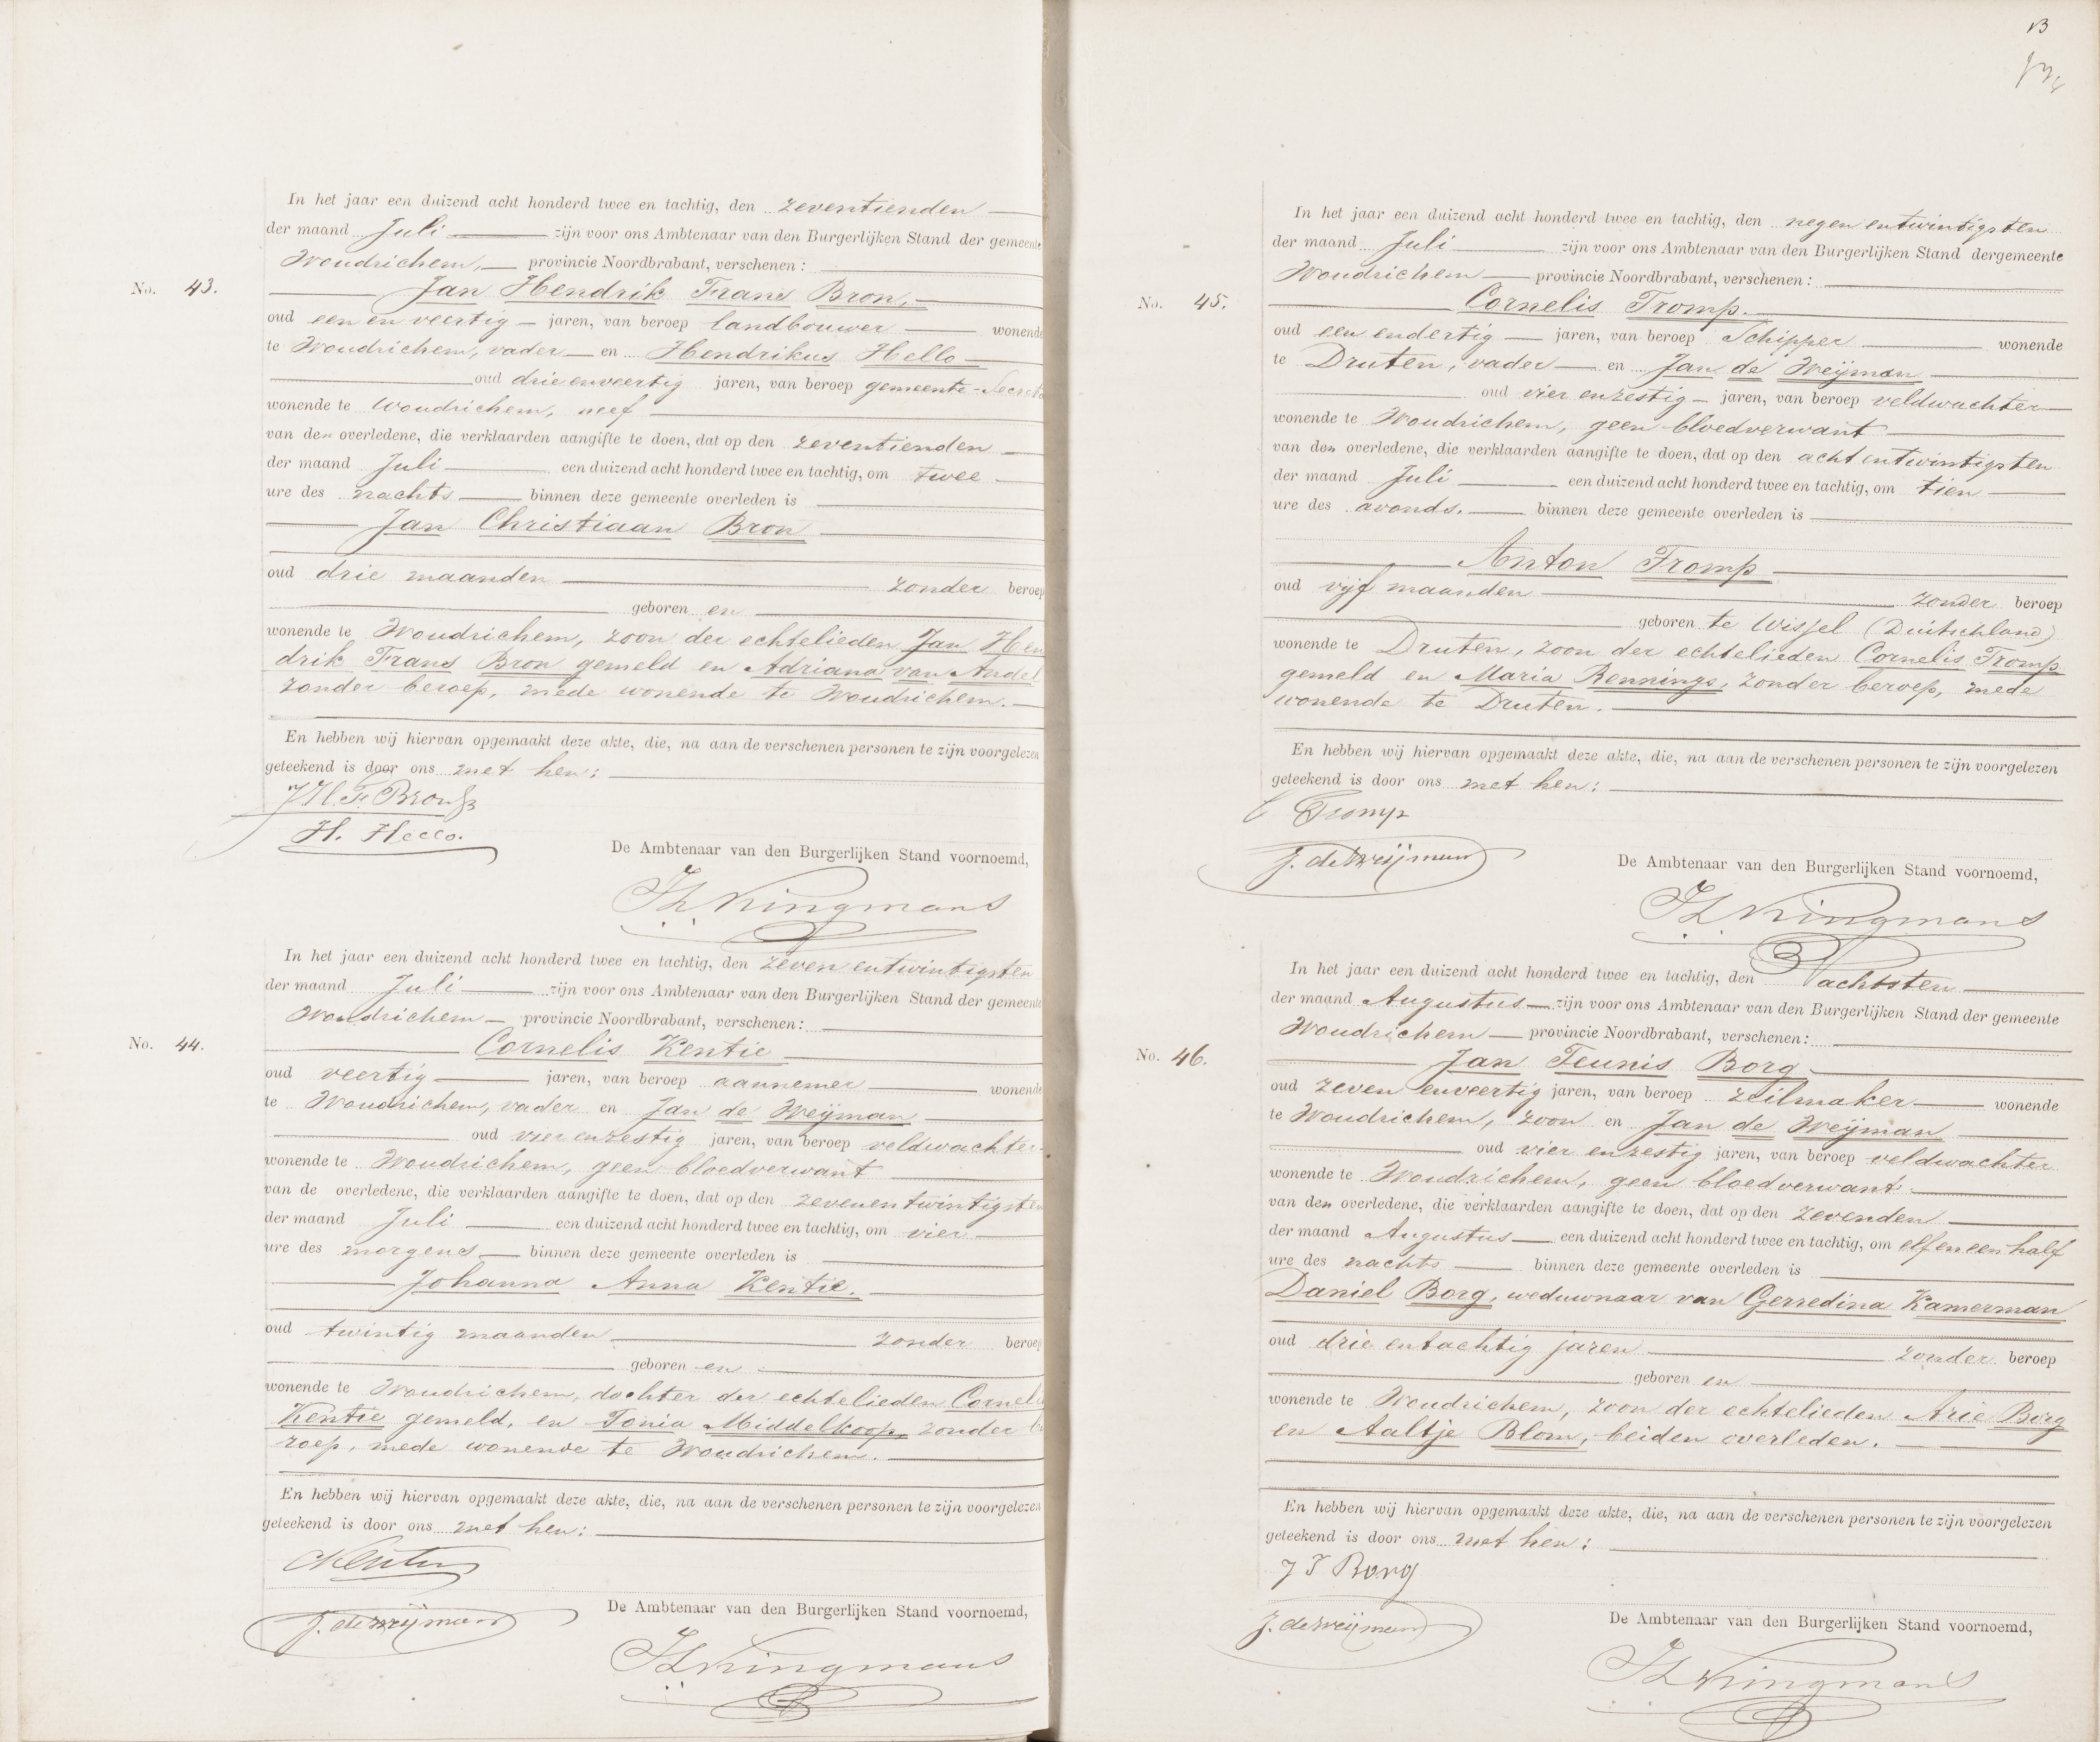 No. 43.
In het jaar een duizend acht honderd twee en tachtig, den zeventienden
der maand Juli zijn voor ons Ambtenaar van den Burgerlijken Stand der gemeente
Woudrichem, provincie Noordbrabant, verschenen:
Jan Hendrik Frans Bron,
oud een en veertig jaren, van beroep landbouwer wonende
te Woudrichem, vader en Hendrikus Hello
oud drie en veertig jaren, van beroep gemeente-Secret
wonende te Woudrichem, neef
van den overledene, die verklaarden aangifte te doen, dat op den zeventienden
der maand Juli een duizend acht honderd twee en tachtig, om twee
ure des nachts binnen deze gemeente overleden is
Jan Christiaan Bron
oud drie maanden zonder beroep
geboren en
wonende te Woudrichem, zoon der echtelieden Jan Hen
drik Frans Bron gemeld en Adriana van Andel
zonder beroep, mede wonende te Woudrichem.
En hebben wij hiervan opgemaakt deze akte, die, na aan de verschenen personen te zijn voorgelezen
geteekend is door ons met hen:
J H. F. Bron
H. Hello.
De Ambtenaar van den Burgerlijken Stand voornoemd,
Kingmans
No. 44.
In het jaar een duizend acht honderd twee en tachtig, den zeven entwintigsten
der maand Juli zijn voor ons Ambtenaar van den Burgerlijken Stand der gemeente
Woudrichem provincie Noordbrabant, verschenen:
Cornelis Kentie
oud veertig jaren, van beroep aannemer wonende
te Woudrichem, vader en Jan de Weijman
oud vier enzestig jaren, van beroep veldwachter
wonende te Woudrichem, geen bloedverwant
van de overledene, die verklaarden aangifte te doen, dat op den zevenentwintigsten
der maand Juli een duizend acht honderd twee en tachtig, om vier
ure des morgens binnen deze gemeente overleden is
Johanna Anna Kentie.
oud twintig maanden zonder beroep
geboren en
wonende te Woudrichem, dochter der echtelieden Cornelis
Kentie gemeld, en Tonia Middelkoop zonder be
roep, mede wonende te Woudrichem.
En hebben wij hiervan opgemaakt deze akte, die, na aan de verschenen personen te zijn voorgelezen
geteekend is door ons met hen:
CKentie
J. de Weijman
De Ambtenaar van den Burgerlijken Stand voornoemd,
Kingmans
13
No. 45.
In het jaar een duizend acht honderd twee en tachtig, den negen entwintigsten
der maand Juli zijn voor ons Ambtenaar van den Burgerlijken Stand der gemeente
Woudrichem provincie Noordbrabant, verschenen:
Cornelis Tromp.
oud een endertig jaren, van beroep Schipper wonende
te Druten, vader en Jan de Weijman
oud vier enzestig jaren, van beroep veldwachter
wonende te Woudrichem, geen bloedverwant
van den overledene, die verklaarden aangifte te doen, dat op den acht entwintigsten
der maand Juli een duizend acht honderd twee en tachtig, om tien
ure des avonds. binnen deze gemeente overleden is
Anton Tromp
oud vijf maanden zonder beroep
geboren te Wissel (Duitschland)
wonende te Druten, zoon der echtelieden Cornelis Tromp
gemeld en Maria Rennings, zonder beroep, mede
wonende te Druten.
En hebben wij hiervan opgemaakt deze akte, die, na aan de verschenen personen te zijn voorgelezen
geteekend is door ons met hen:
C Tromp
J. de Weijman
De Ambtenaar van den Burgerlijken Stand voornoemd,
Kingmans
No. 46.
In het jaar een duizend acht honderd twee en tachtig, den achtsten
der maand Augustus zijn voor ons Ambtenaar van den Burgerlijken Stand der gemeente
Woudrichem provincie Noordbrabant, verschenen:
Jan Teunis Borg
oud zeven enveertig jaren, van beroep zeilmaker wonende
te Woudrichem, zoon en Jan de Weijman
oud vier enzestig jaren, van beroep veldwachter
wonende te Woudrichem, geen bloedverwant
van den overledene, die verklaarden aangifte te doen, dat op den zevenden
der maand Augustus een duizend acht honderd twee en tachtig, om elf en een half
ure des nachts binnen deze gemeente overleden is
Daniel Borg, weduwnaar van Gerredina Kamerman
oud drie entachtig jaren zonder beroep
geboren en
wonende te Woudrichem, zoon der echtelieden Arie Borg
en Aaltje Blom, beiden overleden.
En hebben wij hiervan opgemaakt deze akte, die, na aan de verschenen personen te zijn voorgelezen
geteekend is door ons met hen:
J T Borg
J. de Weijman
De Ambtenaar van den Burgerlijken Stand voornoemd,
Kingmans